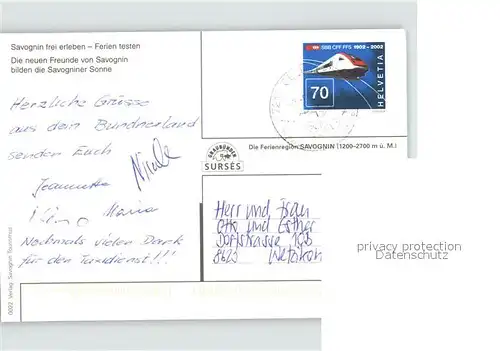 Savognin frei erleben – Ferien testen
Die neuen Freunde von Savognin
bilden die Savogniner Sonne
SBB CFF FFS 1902 – 2002
70
HELVETIA
Herzliche Grüsse
aus dem Bündnerland
senden Euch
Nicole
Jeannette
Maria
Nochmals vielen Dank
für den Taxidienst!!!
Die Ferienregion SAVOGNIN (1200–2700 m ü. M.)
GRAUBÜNDEN
SURSES
Herr und Frau
Otto und Esther
Dorfstrasse
8620 Wetzikon
privacy protection
Datenschutz
0022 Verlag: Savognin Tourismus